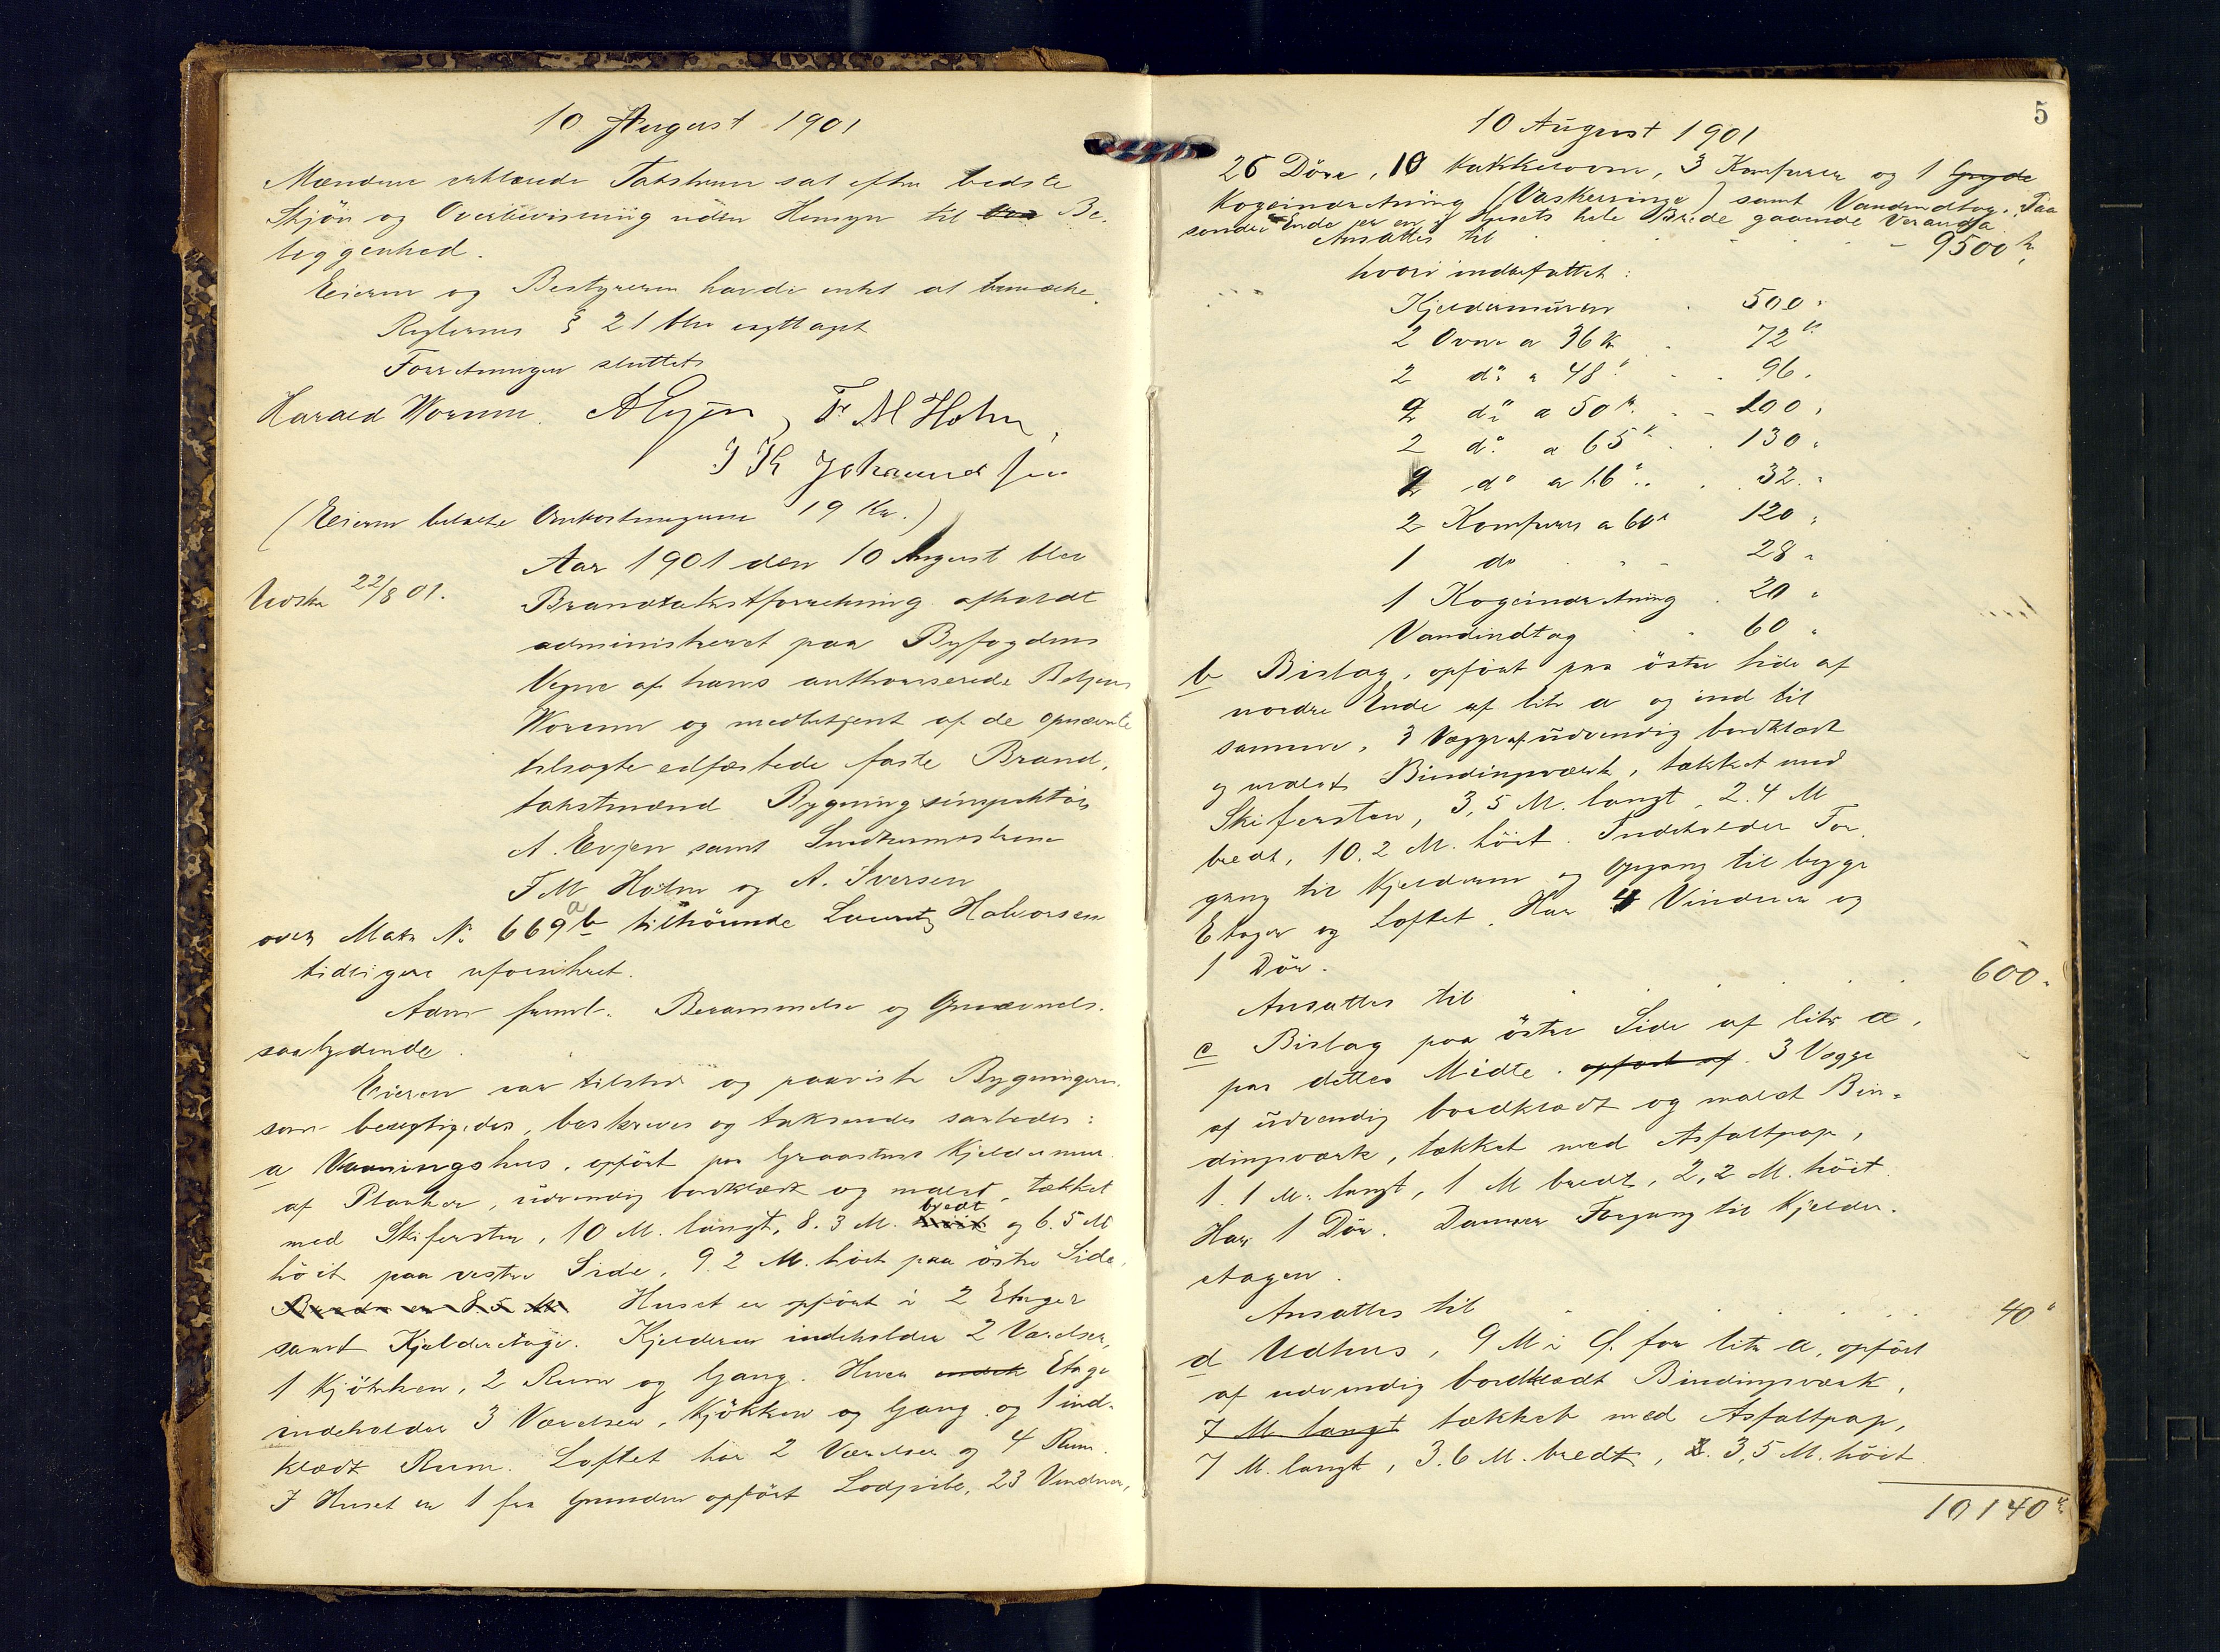 10 August 1901
Mændene erklærede Taksterne sat efter bedste
Skjøn og Overbevisning uden Hensyn til Be-
liggenhed.
Eieren og Bestyreren havde intet at bemærke.
Reglernes § 21 blev iagttaget
Forretningen sluttet
Harald Worum. A Evjen, F. M Holm,
J K Johannessen
(Eieren betalte Omkostningerne 19 Kr.)
Aar 1901 den 10 August blev
Udskr 22/8 01.
Brandtakstforretning afholdt
administreret paa Byfogdens
Vegne af hans authoriserede Betjent
Worum og medbetjent af de opnævnte
tilsagte edfæstede faste Brand-
takstmænd Bygningsinspektør
A. Evjen samt Snedkermestrene
F M Holm og A. Iversen
over Matr No 669 a b tilhörende Lauritz Halvorsen
tidligere uforsikret.
Adm freml. Berammelse og Opnævnels.
saalydende.
Eieren var tilstede og paaviste Bygningerne
som besigtigedes, beskreves og taksendes saaledes:
a Vaaningshus, opfört paa Graastens Kjeldermur
af Planker, udvendig bordklædt og malet, tækket
med Skifersten, 10 M. langt, 8.3 M. höit bredt og 6.5 M
höit paa vestre Side, 9.2 M. höit paa östre Side,
Bredde er 8.5 M. Huset er opfört i 2 Etager
samt Kjelderetage. Kjelderen indeholder 2 Værelser,
1 Kjökken, 2 Rum og Gang. Hver Etage
indeholder 3 Værelser, Kjökken og Gang og 1 ind-
klædt Rum. Loftet har 2 Værelser og 4 Rum.
I Huset er 1 fra Grunden opfört Lodpibe, 23 Vinduer,
5
10 August 1901
26 Döre, 10 Kakkelovne, 3 Komfurer og 1 Gryde
Kogeindretning (Vaskeringe) samt Vandindtag. Paa
søndre Ende er en i Husets hele Brede gaaende Veranda
Ansattes til 9500 kr.
hvori indbefattet:
Kjeldermuren 500 "
2 Ovne a 36 kr 72 "
2 do a 48 " 96 "
2 do a 50 kr. 100 "
2 do a 65 kr 130 "
2 do a 16 " 32 "
2 Komfurer a 60 " 120 "
1 do 28 "
1 Kogeindretning 20 "
Vandindtag 60 "
b Bislag, opfört paa östre Side af
nordre Ende af litr a og ind til
samme, 3 Vægge af udvendig bordklædt
og malet Bindingsværk, tækket med
Skifersten, 3,5 M. langt, 2.4 M
bredt, 10.2 M. höit. Indeholder For-
gang til Kjelderen og Opgang til begge
Etager og Loftet. Har 4 Vinduer og
1 Dör.
Ansattes til 600 "
c Bislag paa östre Side af litr a,
paa dettes Midte. opført af 3 Vægge
af udvendig bordklædt og malet Bin-
dingsværk, tækket med Asfaltpap,
1.1 M. langt, 1 M bredt, 2,2 M. höit.
Har 1 Dör. Danner Forgang til Kjelder-
etagen.
Ansattes til 40 "
d Udhus, 9 M i Ø. for litr a, opfört
af udvendig bordklædt Bindingsværk,
7 M. langt tækket med Asfaltpap,
7 M. langt, 3.6 M. bredt, 3,5 M. höit.
10140 kr